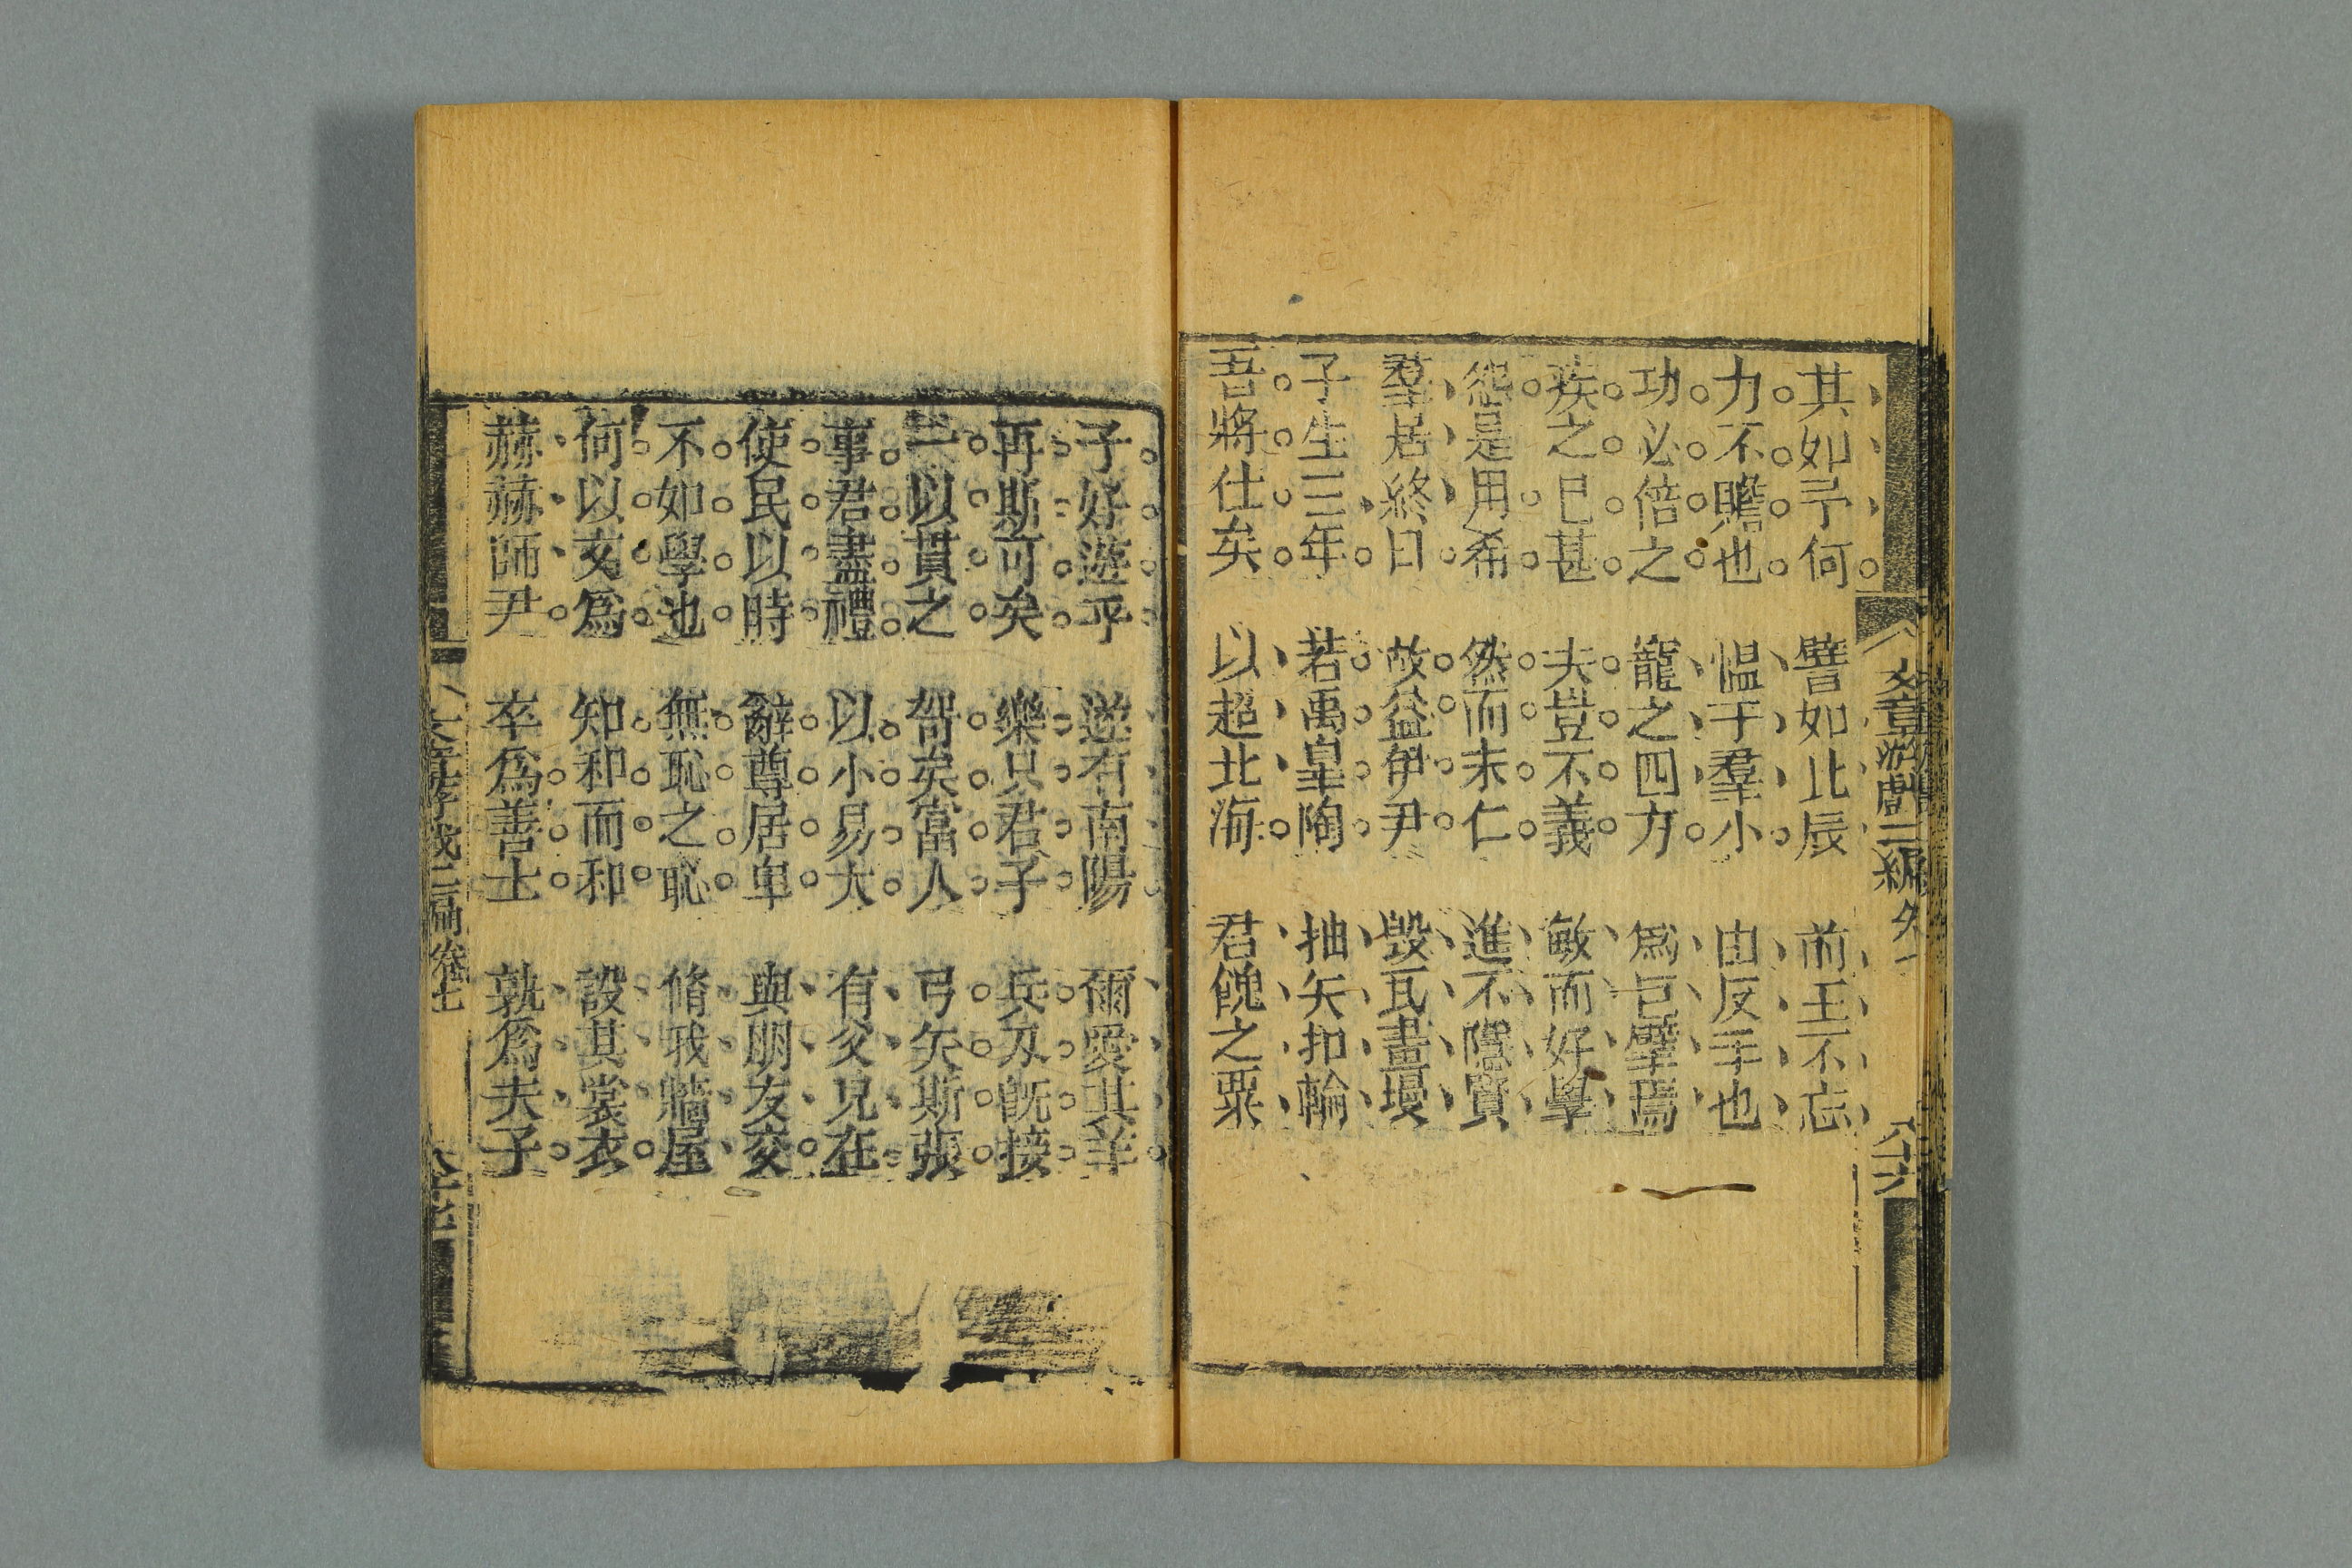 文章游戲二編
八十六
其如予何　譬如北辰　前王不忘
力不贍也　愠于羣小　由反手也
功必倍之　龍之四方　爲巨擘焉
疾之已甚　夫豈不義　敏而好學
怨是用希　然而未仁　進不隱賢
羣居終日　故益伊尹　毁瓦畫墁
子生三年　若禹臯陶　抽矢扣輪
吾將仕矣　以超北海　君餽之粟
子好遊乎　遂有南陽　爾愛其羊
再斯可矣　樂只君子　兵刃旣接
一以貫之　哿矣富人　弓矢斯張
事君盡禮　以小易大　有父兄在
使民以時　辭尊居卑　與朋友交
不如學也　無恥之恥　脩我牆屋
何以文爲　知和而和　設其裳衣
赫赫師尹　卒爲善士　孰爲夫子
卷七